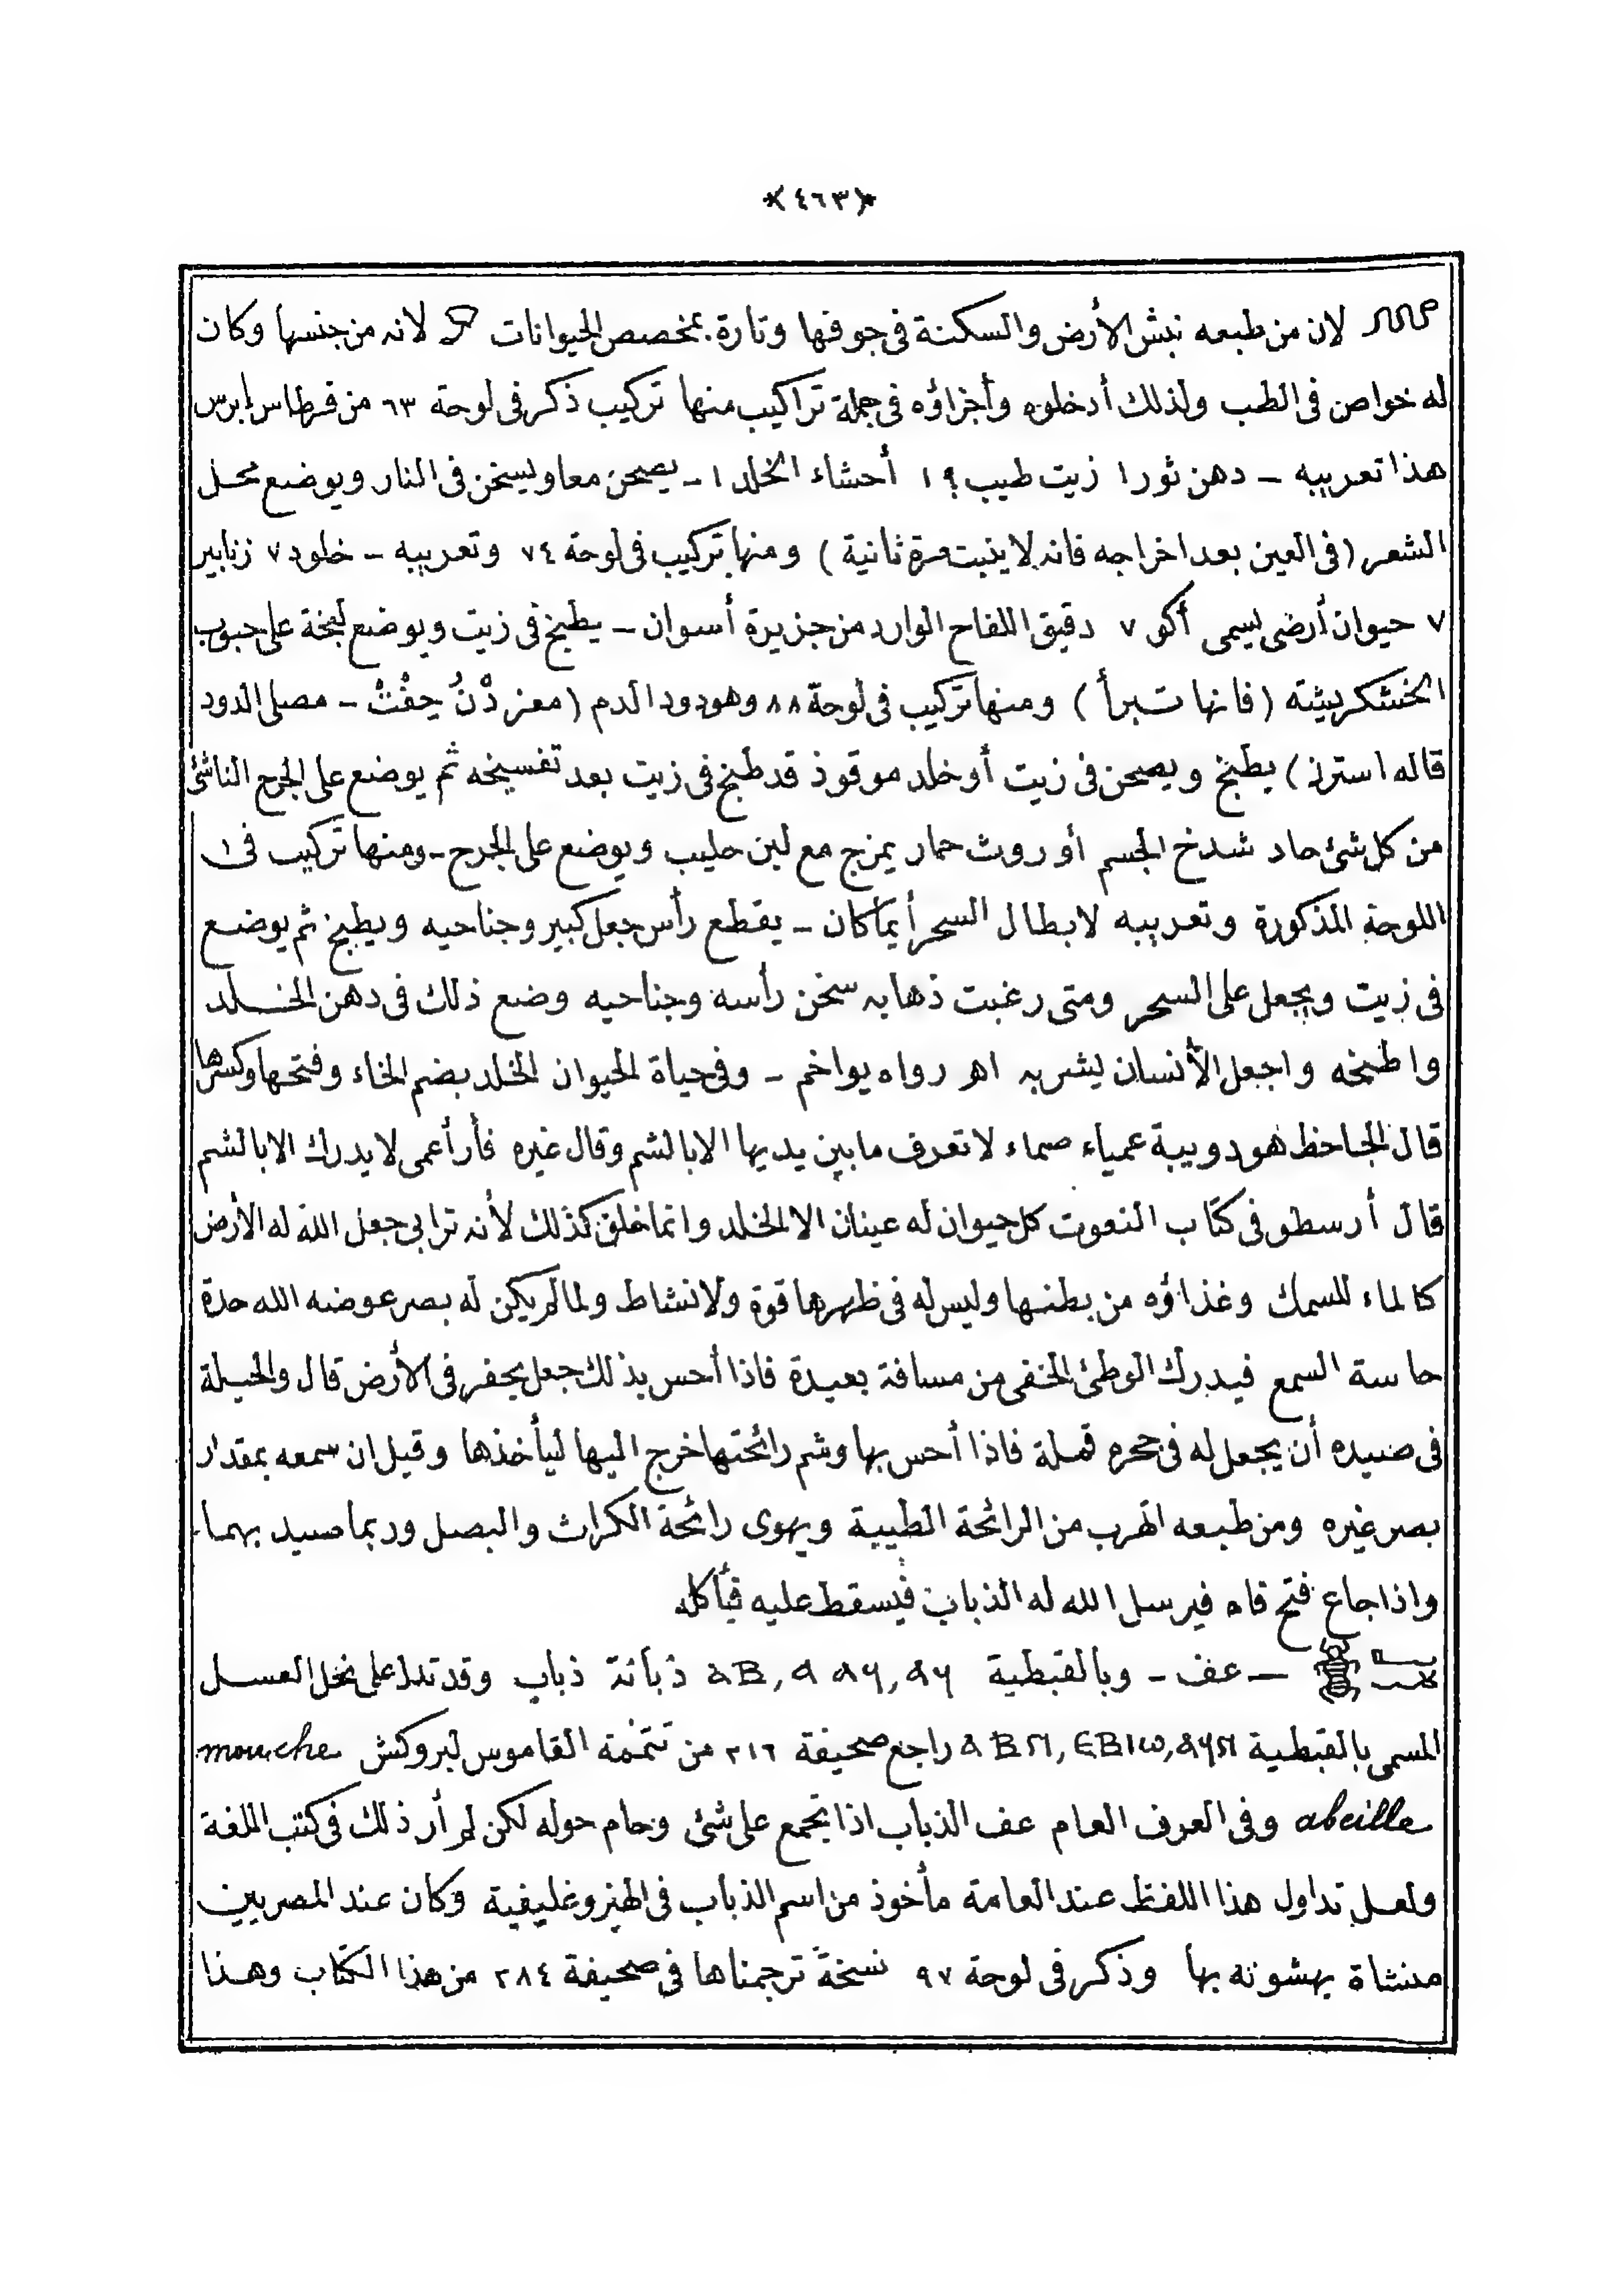 ﴿٤٦٣﴾
لان من طبعه نبش الأرض والسكنة فى جوفها وتارة بمخصص الحيوانات لانه من جنسها وكان
له خواص فى الطب ولذلك أدخلوه وأجزاؤه فى جملة تراكيب منها تركيب ذكر فى لوحة ٦٣ من قرطاس إبرس
هذا تعريبه – دهن ثور ١ زيت طيب ؟ ١ أحشاء الخلد ١ – يصحن معا ويسخن فى النار ويوضع محل
الشعر (فى العين بعد اخراجه فانه لا ينبت مرة ثانية) ومنها تركيب فى لوحة ٧٤ وتعريبه – خلود ٧ زنابير
٧ حيوان أرضى يسمى أكو ٧ دقيق اللفاح الوارد من جزيرة أسوان – يطبخ فى زيت ويوضع لبخة على حبوب
الخشكريشة (فانها تبرأ) ومنها تركيب فى لوحة ٨٨ وهو دود الدم (معز ذْنُ حِفْتْ – مصلى الدود
قاله استرن) يطبخ ويصحن فى زيت أو خلد موقوذ قد طبخ فى زيت بعد تفسيخه ثم يوضع على الجرح الناشئ
من كل شئ حاد شدخ الجسم أو روث حمار يمزج مع لبن حليب ويوضع على الجرح – ومنها تركيب فى
اللوحة المذكورة وتعريبه لابطال السحر أيما كان – يقطع رأس جعل كبير وجناحيه ويطبخ ثم يوضع
فى زيت ويجعل على السحر ومتى رغبت ذهابه سخن رأسه وجناحيه وضع ذلك فى دهن الخلد
واطبخه واجعل الأنسان يشربه اهـ رواه يواخم – وفى حياة الحيوان الخلد بضم الخاء وفتحها وكسرها
قال الجاحظ هو دويبة عمياء صماء لا تعرف ما بين يديها الا بالشم وقال غيره فأر أعمى لا يدرك الا بالشم
قال أرسطو فى كتاب النعوت كل حيوان له عينان الا الخلد وانما خلق كذلك لأنه ترابى جعل الله له الأرض
كالماء للسمك وغذاؤه من بطنها وليس له فى ظهرها قوة ولا نشاط ولما لم يكن له بصر عوضه الله حدة
حاسة السمع فيدرك الوطئ الخفى من مسافة بعيدة فاذا أحس بذلك جعل يحفر فى الأرض قال والحيلة
فى صيده أن يجعل له فى جحره قملة فاذا أحس بها وشم رائحتها خرج اليها ليأخذها وقيل ان سمعه بمقدار
بصر غيره ومن طبعه الهرب من الرائحة الطيبة ويهوى رائحة الكراث والبصل وربما صيد بهما
واذا جاع فتح فاه فيرسل الله له الذباب فيسقط عليه فيأكله
– عف – وبالقبطية ⲁⲃ, ⲁ ⲁϥ, ⲁϥ ذبانة ذباب وقد تدل على نحل العسل
المسمى بالقبطية ⲁⲃⲛ, ⲉⲃⲓⲱ, ⲁϥⲛ راجع صحيفة ٢١٦ من تتمة القاموس لبروكش mouche
abeille وفى العرف العام عف الذباب اذا تجمع على شئ وحام حوله لكن لم أر ذلك فى كتب اللغة
ولعل تداول هذا اللفظ عند العامة مأخوذ من اسم الذباب فى الهيروغليفية وكان عند المصريين
منشاة يهشونه بها وذكر فى لوحة ٩٧ نسخة ترجمناها فى صحيفة ٢٨٤ من هذا الكتاب وهذا